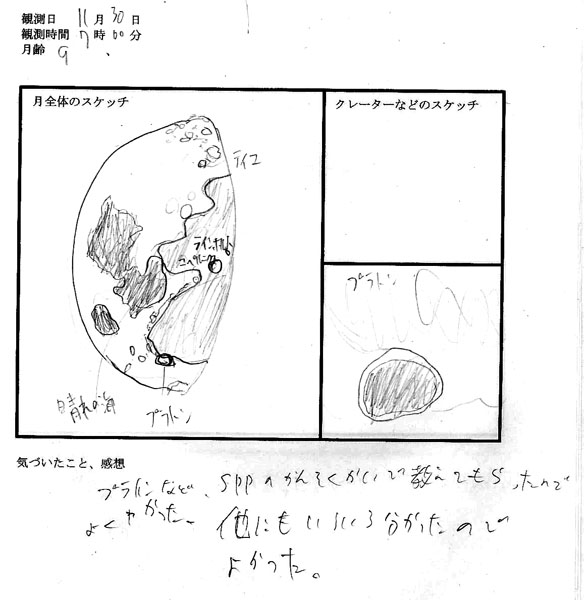 観測日 11月30日
観測時間 7時00分
月齢 9.
月全体のスケッチ
クレーターなどのスケッチ
ティコ
ラインホルト
コペルニクス
プラトン
晴れの海
プラトン
気づいたこと、感想
プラトンなど、SPPのかんそくかいで教えてもらったので
よくわかった。他にもいろいろ分かったので
よかった。